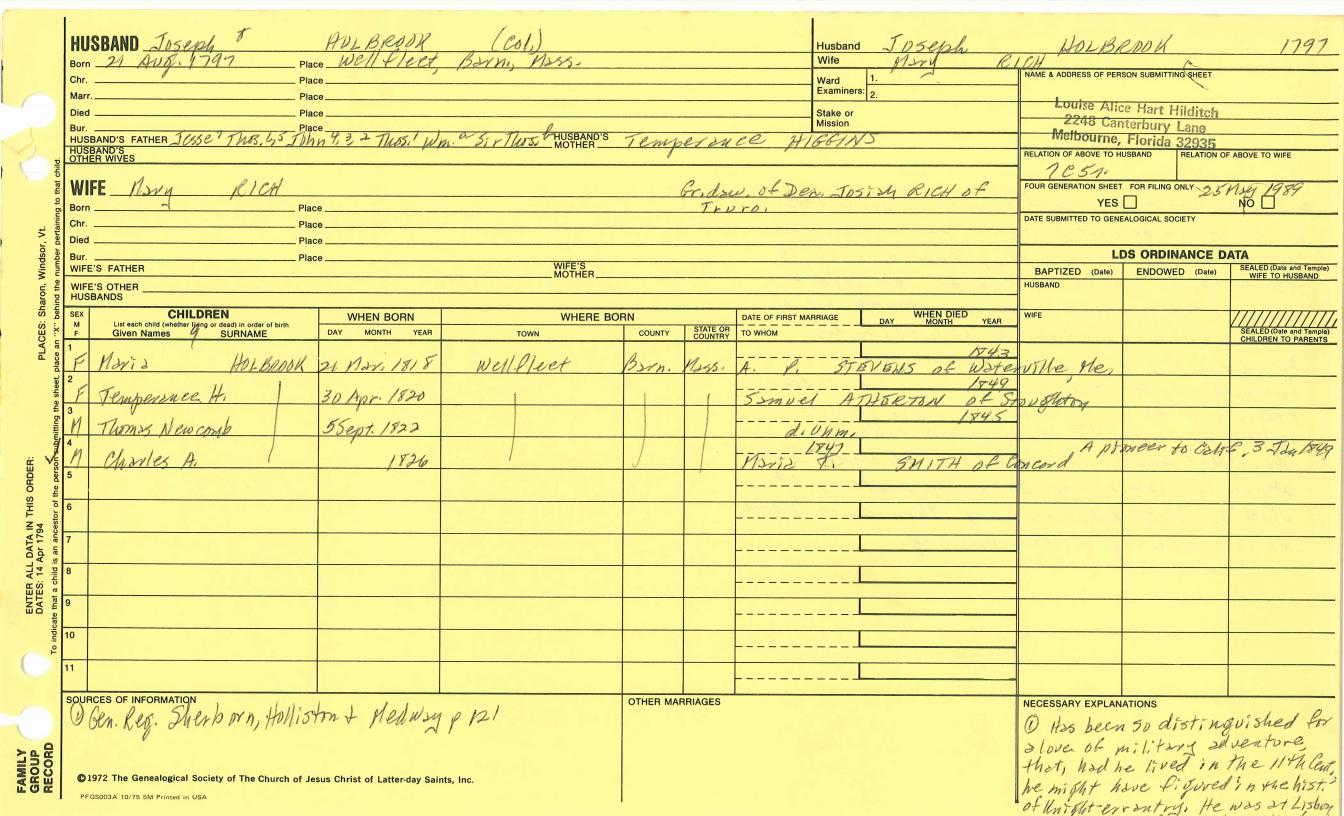 HUSBAND Joseph HOLBROOK (Col.)
Born 21 Aug. 1797 Place Wellfleet, Barn., Mass.
Chr. Place
Marr. Place
Died Place
Bur. Place
HUSBAND'S FATHER Jesse Thos. John Thos. Wm. Sir Thos. HUSBAND'S MOTHER Temperance HIGGINS
HUSBAND'S OTHER WIVES
Husband Joseph HOLBROOK 1797
Wife Mary RICH
Ward Examiners: 1.
2.
Stake or Mission
NAME & ADDRESS OF PERSON SUBMITTING SHEET
Louise Alice Hart Hilditch
2248 Canterbury Lane
Melbourne, Florida 32935
RELATION OF ABOVE TO HUSBAND RELATION OF ABOVE TO WIFE
7C5r.
FOUR GENERATION SHEET FOR FILING ONLY 25 May 1989
YES NO
DATE SUBMITTED TO GENEALOGICAL SOCIETY
WIFE Mary RICH Gr.daw. of Dea. Josiah RICH of
Truro.
Born Place
Chr. Place
Died Place
Bur. Place
WIFE'S FATHER WIFE'S MOTHER
WIFE'S OTHER HUSBANDS
LDS ORDINANCE DATA
BAPTIZED (Date) ENDOWED (Date) SEALED (Date and Temple) WIFE TO HUSBAND
HUSBAND
WIFE
SEALED (Date and Temple) CHILDREN TO PARENTS
SEX M F
CHILDREN
List each child (whether living or dead) in order of birth
Given Names SURNAME
WHEN BORN
DAY MONTH YEAR
WHERE BORN
TOWN COUNTY STATE OR COUNTRY
DATE OF FIRST MARRIAGE
TO WHOM
WHEN DIED
DAY MONTH YEAR
1 1843
F Maria HOLBROOK 21 Mar. 1818 Wellfleet Barn. Mass. A. P. STEVENS of Waterville, Me.
2 1849
F Temperance H. 30 Apr. 1820 Samuel ATHERTON of Stoughton
3 1845
M Thomas Newcomb 5 Sept. 1822 d. unm.
4 1847
M Charles A. 1826 Maria F. SMITH of Concord A pioneer to Calif. 3 Jan 1849
5
6
7
8
9
10
11
SOURCES OF INFORMATION
① Gen. Reg. Sherborn, Holliston & Medway p 121
OTHER MARRIAGES
NECESSARY EXPLANATIONS
① Has been so distinguished for
a love of military adventure,
that, had he lived in the 11th Cent.,
he might have figured in the hist.
of Knight errantry. He was at Lisbon
©1972 The Genealogical Society of The Church of Jesus Christ of Latter-day Saints, Inc.
PFGS003A 10/75 5M Printed in USA
FAMILY GROUP RECORD
ENTER ALL DATA IN THIS ORDER:
DATES: 14 Apr 1794
PLACES: Sharon, Windsor, Vt.
To indicate that a child is an ancestor of the person submitting the sheet, place an "X" behind the number pertaining to that child.